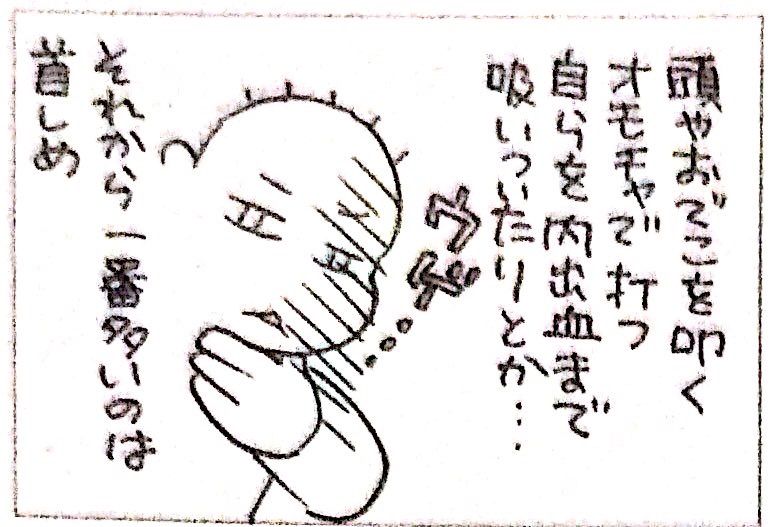 頭やおでこを叩く
オモチャで打つ
自らを内出血まで
吸いついたりとか…
ウゲ…
それから一番多いのは
首しめ